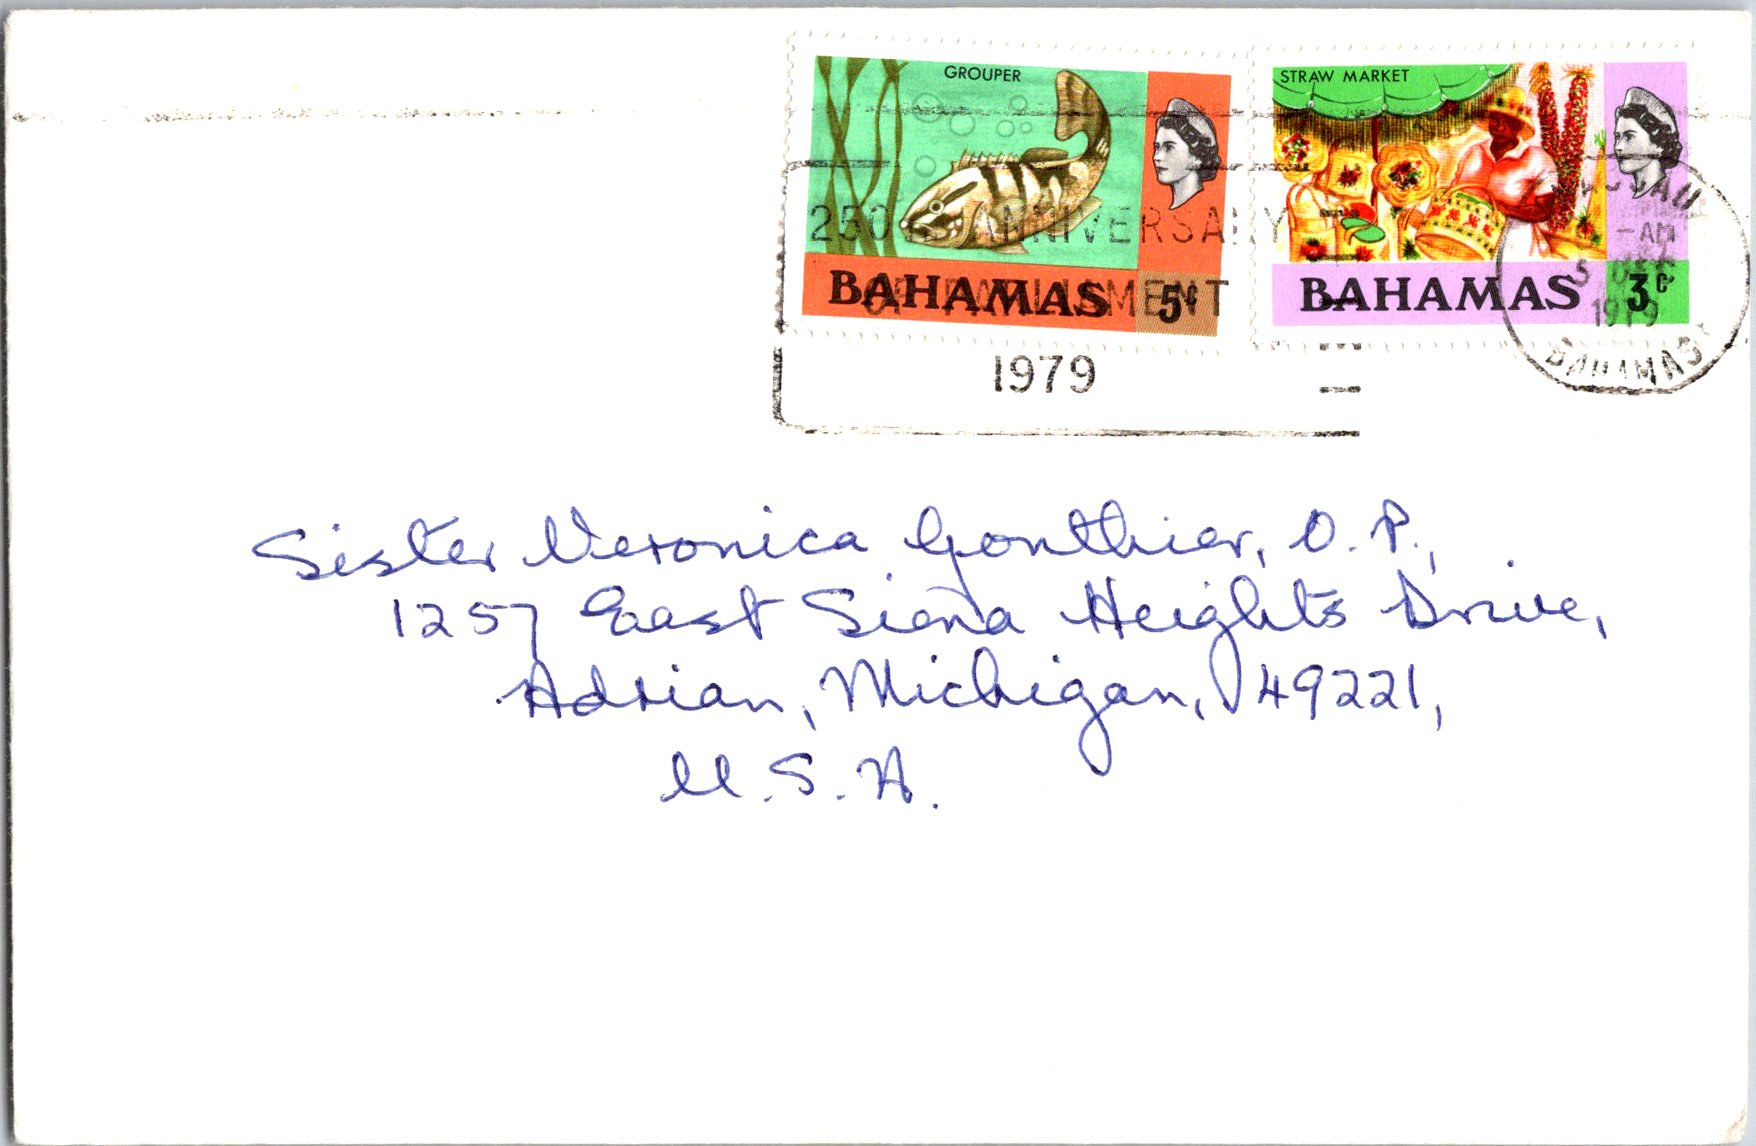 GROUPER
BAHAMAS 5c
STRAW MARKET
BAHAMAS 3c
250 ANNIVERSARY
OF PARLIAMENT
1979
NASSAU
-AM
5
1979
BAHAMAS
Sister Veronica Gonthier, O.P.,
1257 East Siena Heights Drive,
Adrian, Michigan, 49221,
U.S.A.